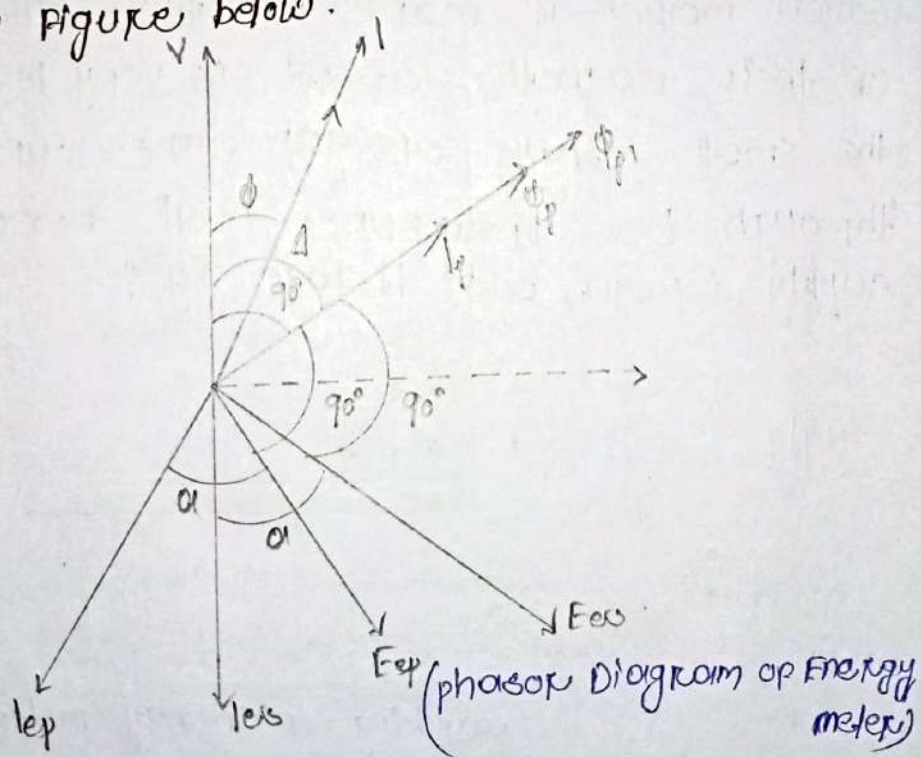 Figure below.
V
I
ϕ
Δ
90°
Φp'
Φp
Ip
90° 90°
α
α
Ees
Eep
Iep
Ies
(phasor Diagram of Energy
meter)